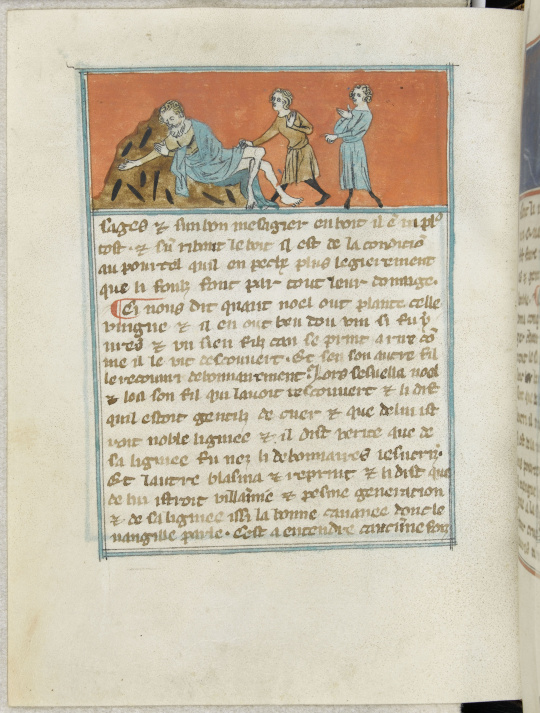 sages & sun bon mesagier en boit il e͂ m plꝰ
tost · & su͂ ribaut le boit il est de la condicio͂
au pourcel quil en peche plus legierement
que li fouls font par tout leur domage ·
Ci nous dit quant noel out plante celle
vingne & il en out beu dou vin si fu y
ures & un sien filz can se print a rire co͂
me il le vit descouvert · Et son autre fil
le recouvri debonnairement · Lors sesveilla noel
& loa son fil qui lavoit recouvert & li dist
quil estoit gentilz de cuer & que de lui ist
roit noble lignee & il dist verite que de
sa lignee fu nez li debonnaires iesucri ·
Et lautre blasma & reprint & li dist que
de lui istroit villainne & pesme generation
& de sa lignee issi la bonne cananee dont le
vangille parle · Cest a entendre